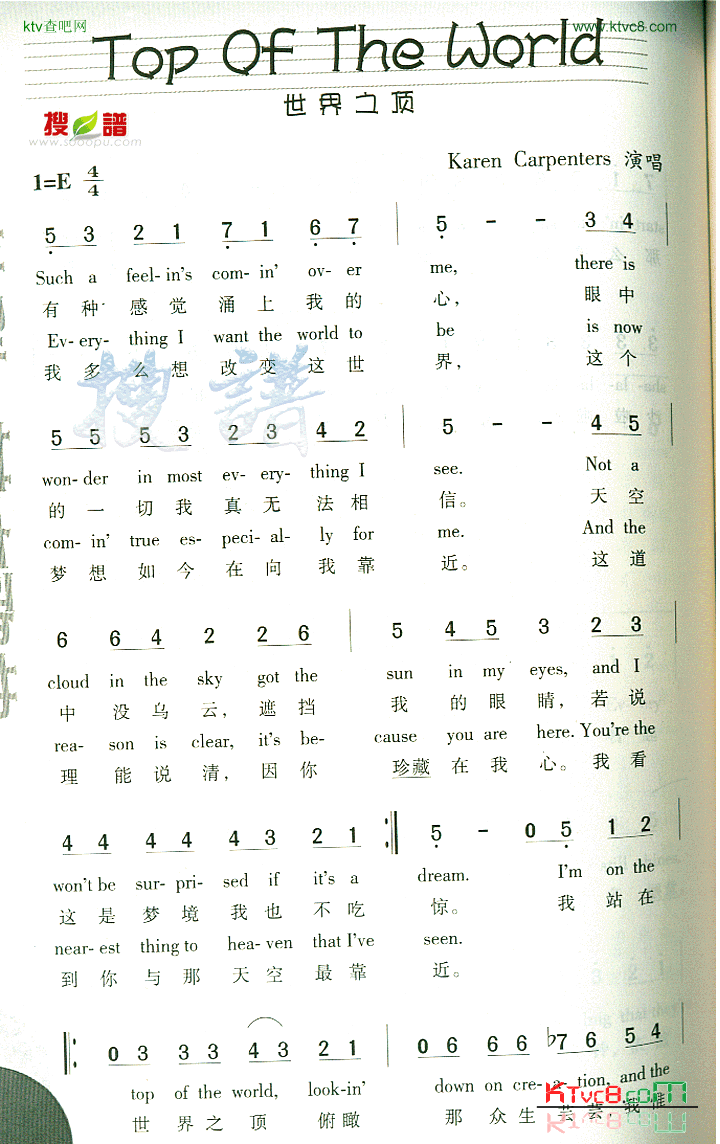 ktv查吧网 www.ktvc8.com
Top Of The World
世界之顶
搜谱
www.sooopu.com
Karen Carpenters 演唱
1=E 4/4
5 3 2 1 7 1 6 7 | 5 - - 3 4
Such a feel-in's com-in' ov-er me, there is
有种感觉涌上我的心，眼中
Ev-ery-thing I want the world to be is now
我多么想改变这世界，这个
搜谱
5 5 5 3 2 3 4 2 | 5 - - 4 5
won-der in most ev-ery-thing I see. Not a
的一切我真无法相信。天空
com-in' true es-peci-al-ly for me. And the
梦想如今在向我靠近。这道
6 6 4 2 2 6 | 5 4 5 3 2 3
cloud in the sky got the sun in my eyes, and I
中没乌云，遮挡我的眼睛，若说
rea-son is clear, it's be-cause you are here. You're the
理能说清，因你珍藏在我心。我看
4 4 4 4 4 3 2 1 :‖ 5 - 0 5 1 2
won't be sur-pri-sed if it's a dream. I'm on the
这是梦境我也不吃惊。我站在
near-est thing to hea-ven that I've seen.
到你与那天空最靠近。
‖: 0 3 3 3 4 3 2 1 | 0 6 6 6 ♭7 6 5 4
top of the world, look-in' down on cre-a-tion, and the
世界之顶俯瞰那众生芸芸，我惟
KTvc8.com